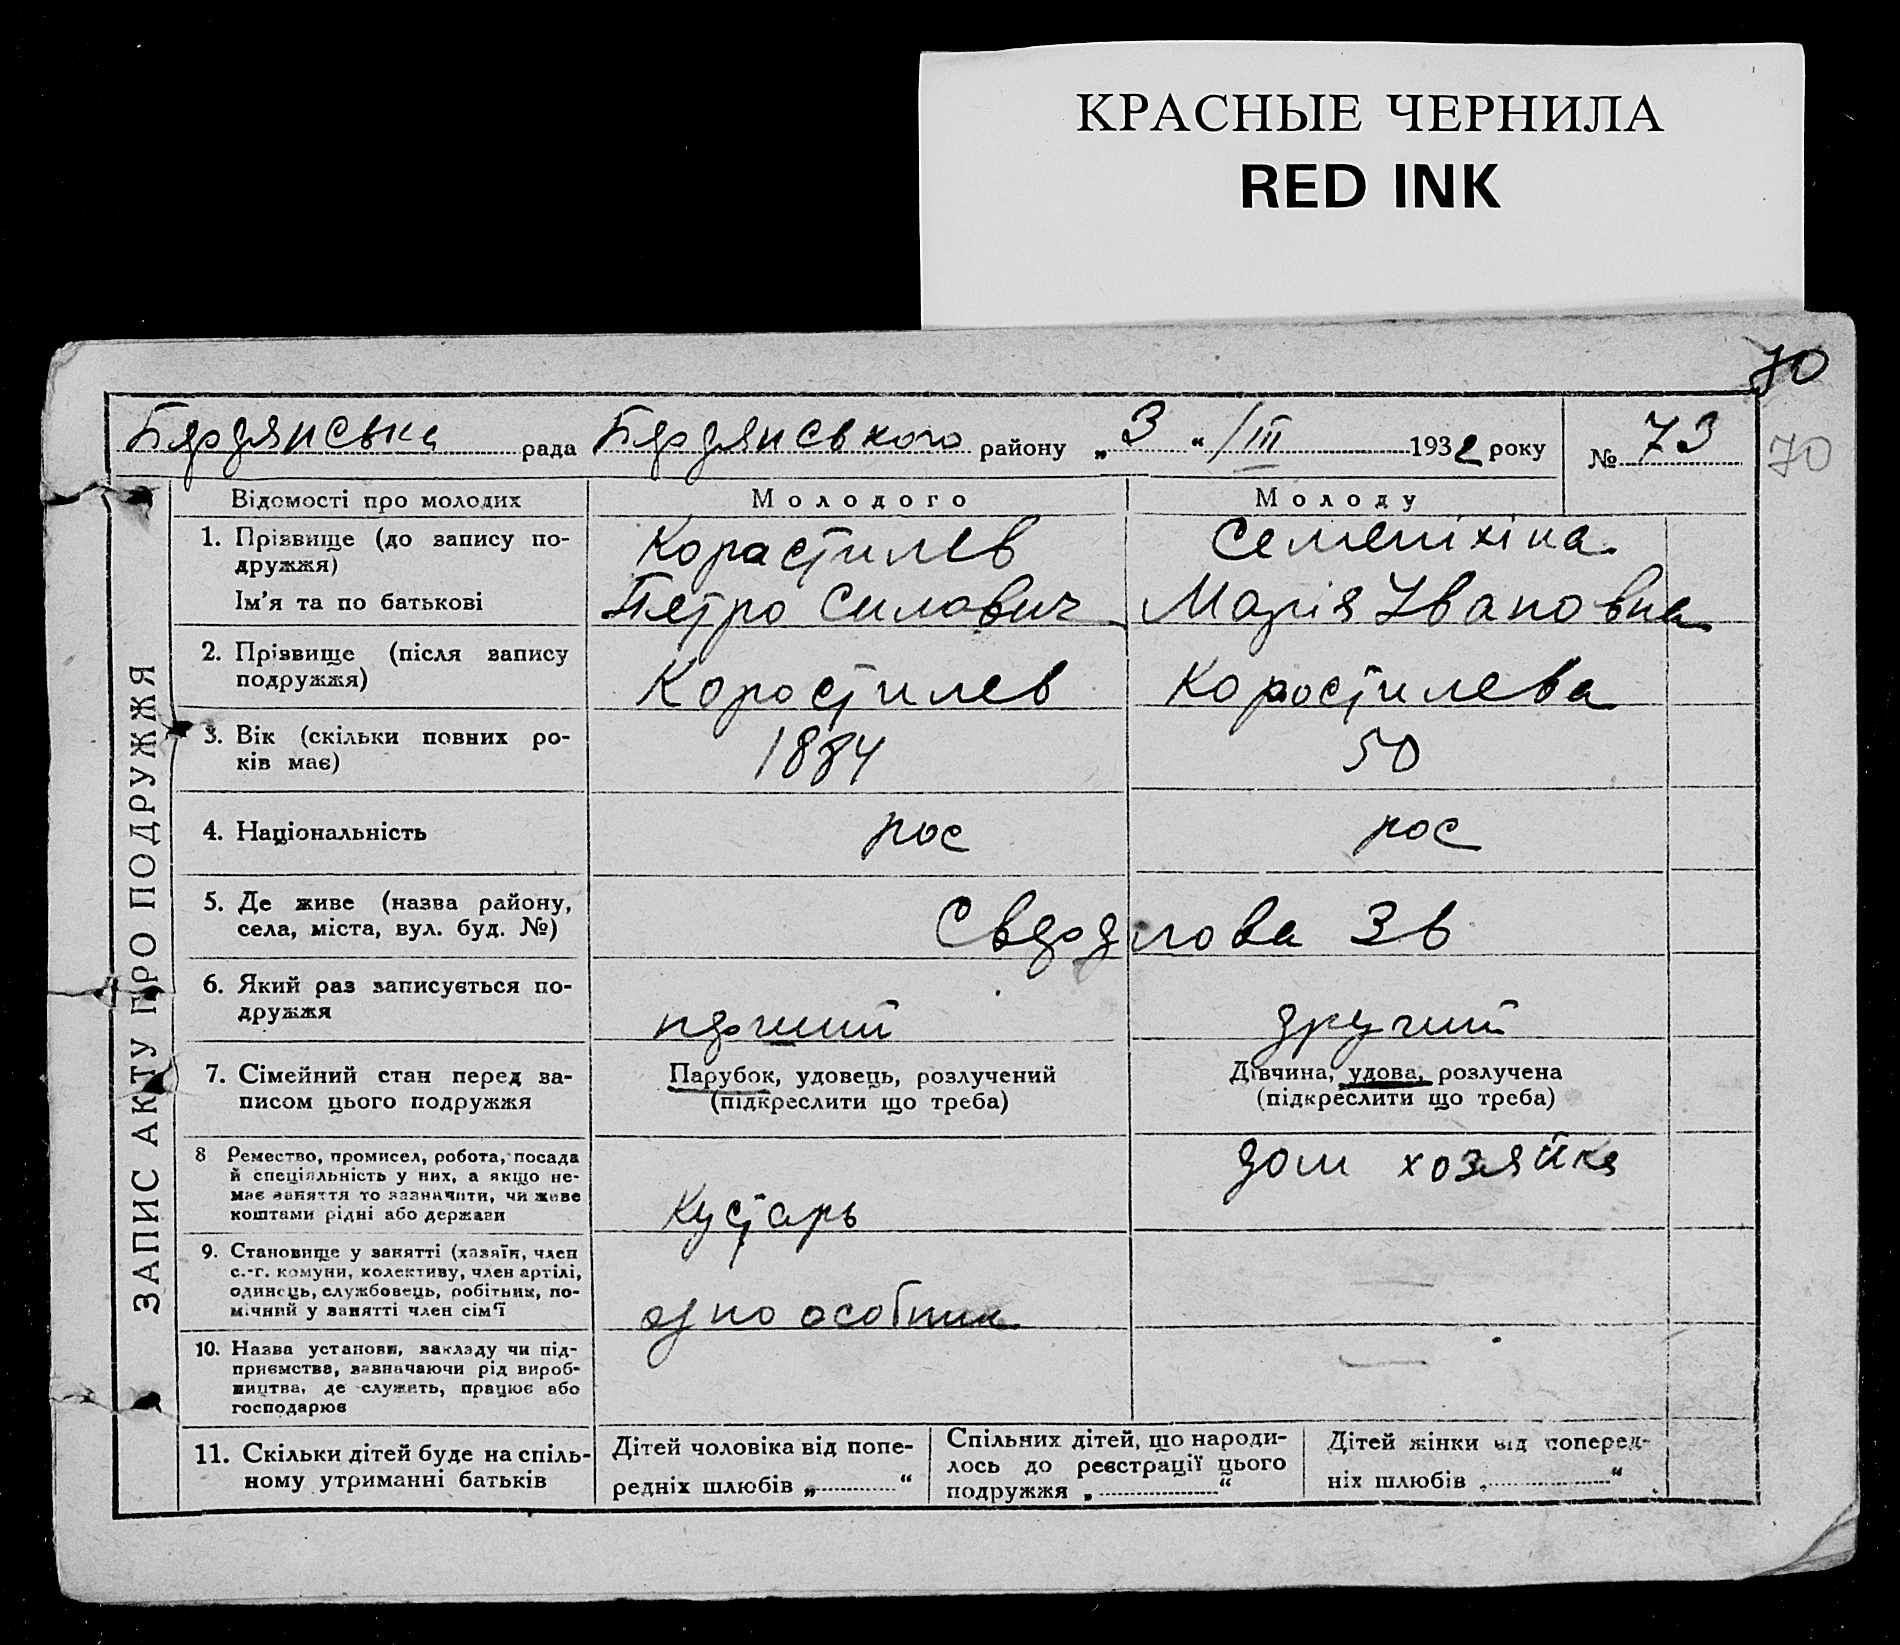 КРАСНЫЕ ЧЕРНИЛА
RED INK
70
Бердянська рада Бердянського району „3“ /III 1932 року № 73
70
ЗАПИС АКТУ ПРО ПОДРУЖЖЯ
Відомості про молодих Молодого Молоду
1. Прізвище (до запису по-
дружжя)
Корастилев Семеніхіна
Ім'я та по батькові Петро Силович Марія Івановна
2. Прізвище (після запису
подружжя)
Коростилев Коростилева
3. Вік (скільки повних ро-
ків має)
1884 50
4. Національність рос рос
5. Де живе (назва району,
села, міста, вул. буд. №)
Свердлова 36
6. Який раз записується по-
дружжя
перший другий
7. Сімейний стан перед за-
писом цього подружжя
Парубок, удовець, розлучений
(підкреслити що треба)
Дівчина, удова, розлучена
(підкреслити що треба)
8 Ремество, промисел, робота, посада
й спеціяльність у них, а якщо не-
має заняття то зазначити, чи живе
коштами рідні або держави
Кустарь дом хозяйка
9. Становище у занятті (хазяїн, член
с.-г. комуни, колективу, член артілі,
одинець, службовець, робітник, по-
мічний у занятті член сім'ї
одноособник
10. Назва установи, закладу чи під-
приємства, зазначаючи рід вироб-
ництва, де служить, працює або
господарює
11. Скільки дітей буде на спіль-
ному утриманні батьків
Дітей чоловіка від попе-
редніх шлюбів „ “
Спільних дітей, що народи-
лось до реєстрації цього
подружжя „ “
Дітей жінки від поперед-
ніх шлюбів „ “